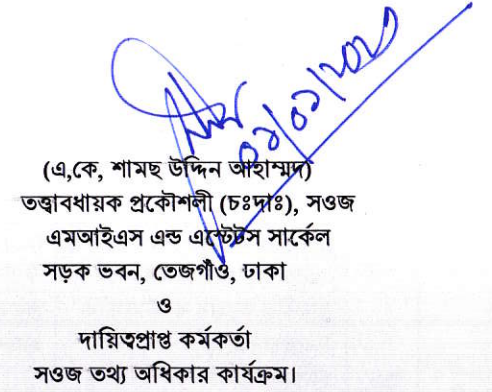 (এ,কে, শামছ উদ্দিন আহাম্মদ)
তত্ত্বাবধায়ক প্রকৌশলী (চঃদাঃ), সওজ
এমআইএস এন্ড এস্টেটস সার্কেল
সড়ক ভবন, তেজগাঁও, ঢাকা
ও
দায়িত্বপ্রাপ্ত কর্মকর্তা
সওজ তথ্য অধিকার কার্যক্রম।